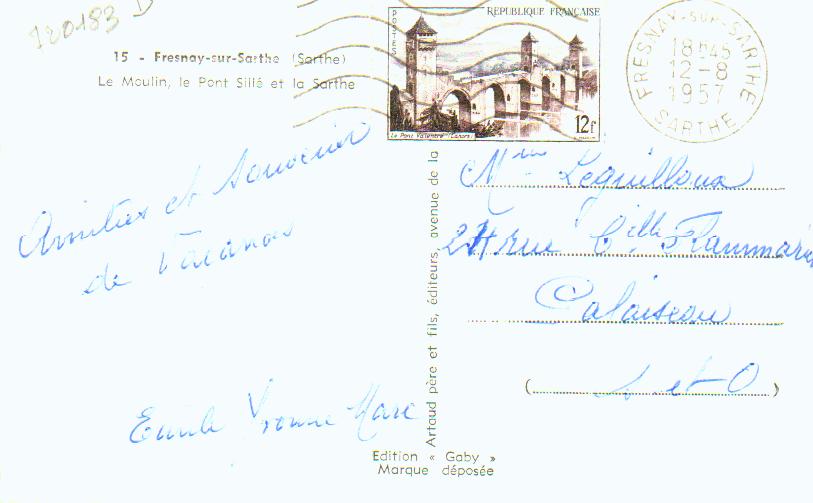 120183 D
15 - Fresnay-sur-Sarthe (Sarthe)
Le Moulin, le Pont Sillé et la Sarthe
POSTES
REPUBLIQUE FRANÇAISE
Le Pont Valentré (Cahors)
12f
FRESNAY-SUR-SARTHE
18H45
12-8
1957
SARTHE
Amitiés et souvenir
de Vacances
Emile Yvonne Marc
Artaud père et fils, éditeurs, avenue de la
Edition « Gaby »
Marque déposée
Mme Leguilloux
24 rue C.ille Flammarion
Palaiseau
(S. et O)